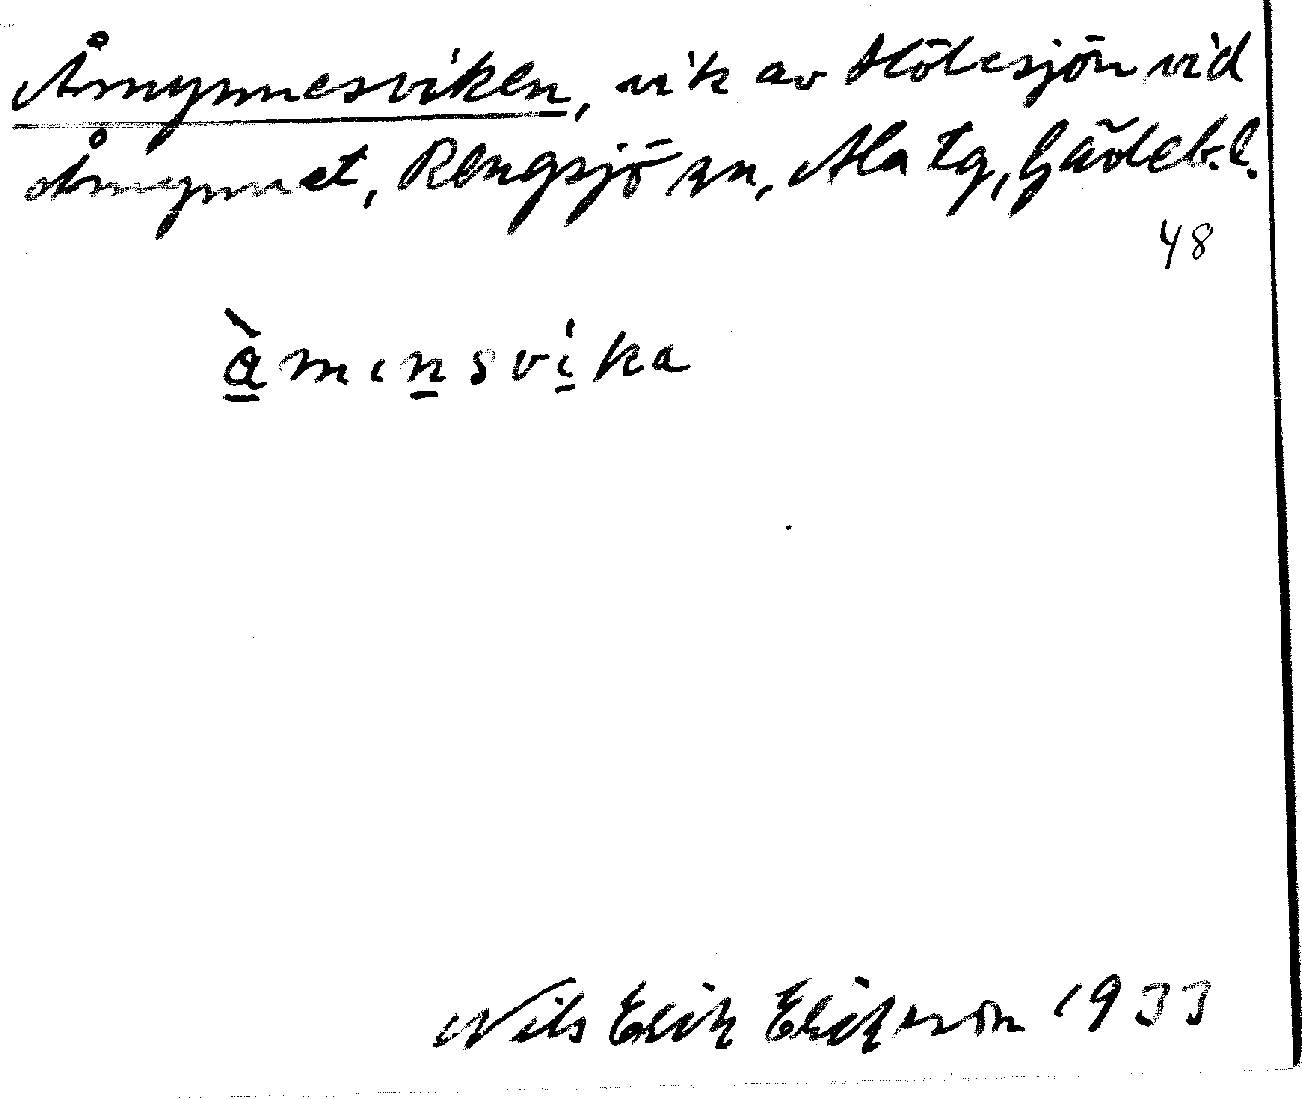 Åmynnesviken, vik av Hölesjön vid
Åmynnet, Rengsjö sn, Ala tg, Gävleb. l.
48
åmɩnsvika
Nils Erik Erikson 1933